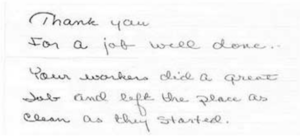 Thank you
For a job well done.
Your workers did a great
Job and left the place as
clean as they started.